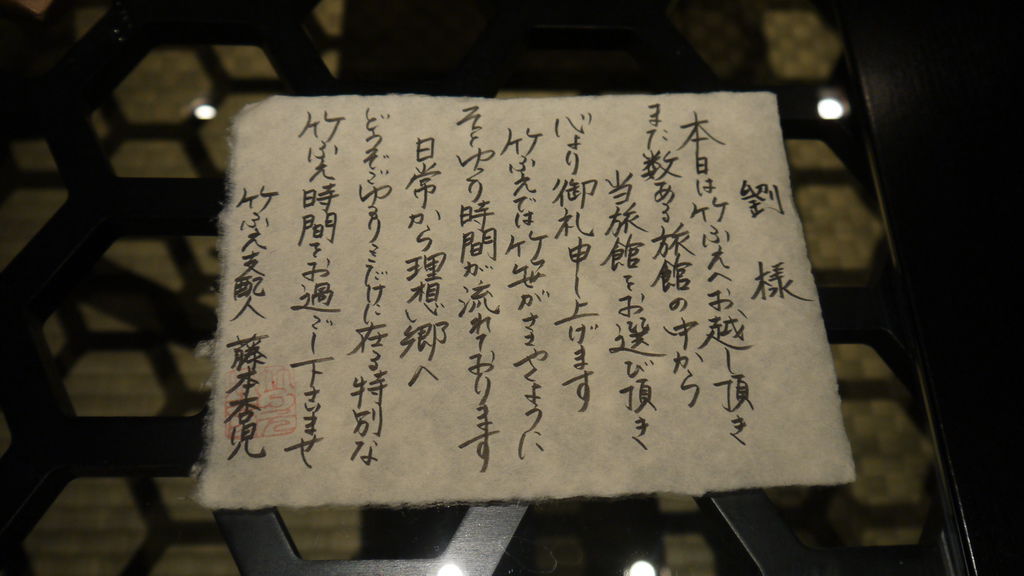 劉 様
本日は竹ふえへお越し頂き
また数ある旅館の中から
当旅館をお選び頂き
心より御礼申し上げます
竹ふえでは竹笹がささやくように
そとゆり時間が流れております
日常から理想郷へ
どうぞごゆるりとだけに在る特別な
竹ふえ時間をお過ごし下さいませ
竹ふえ支配人 藤本杏児